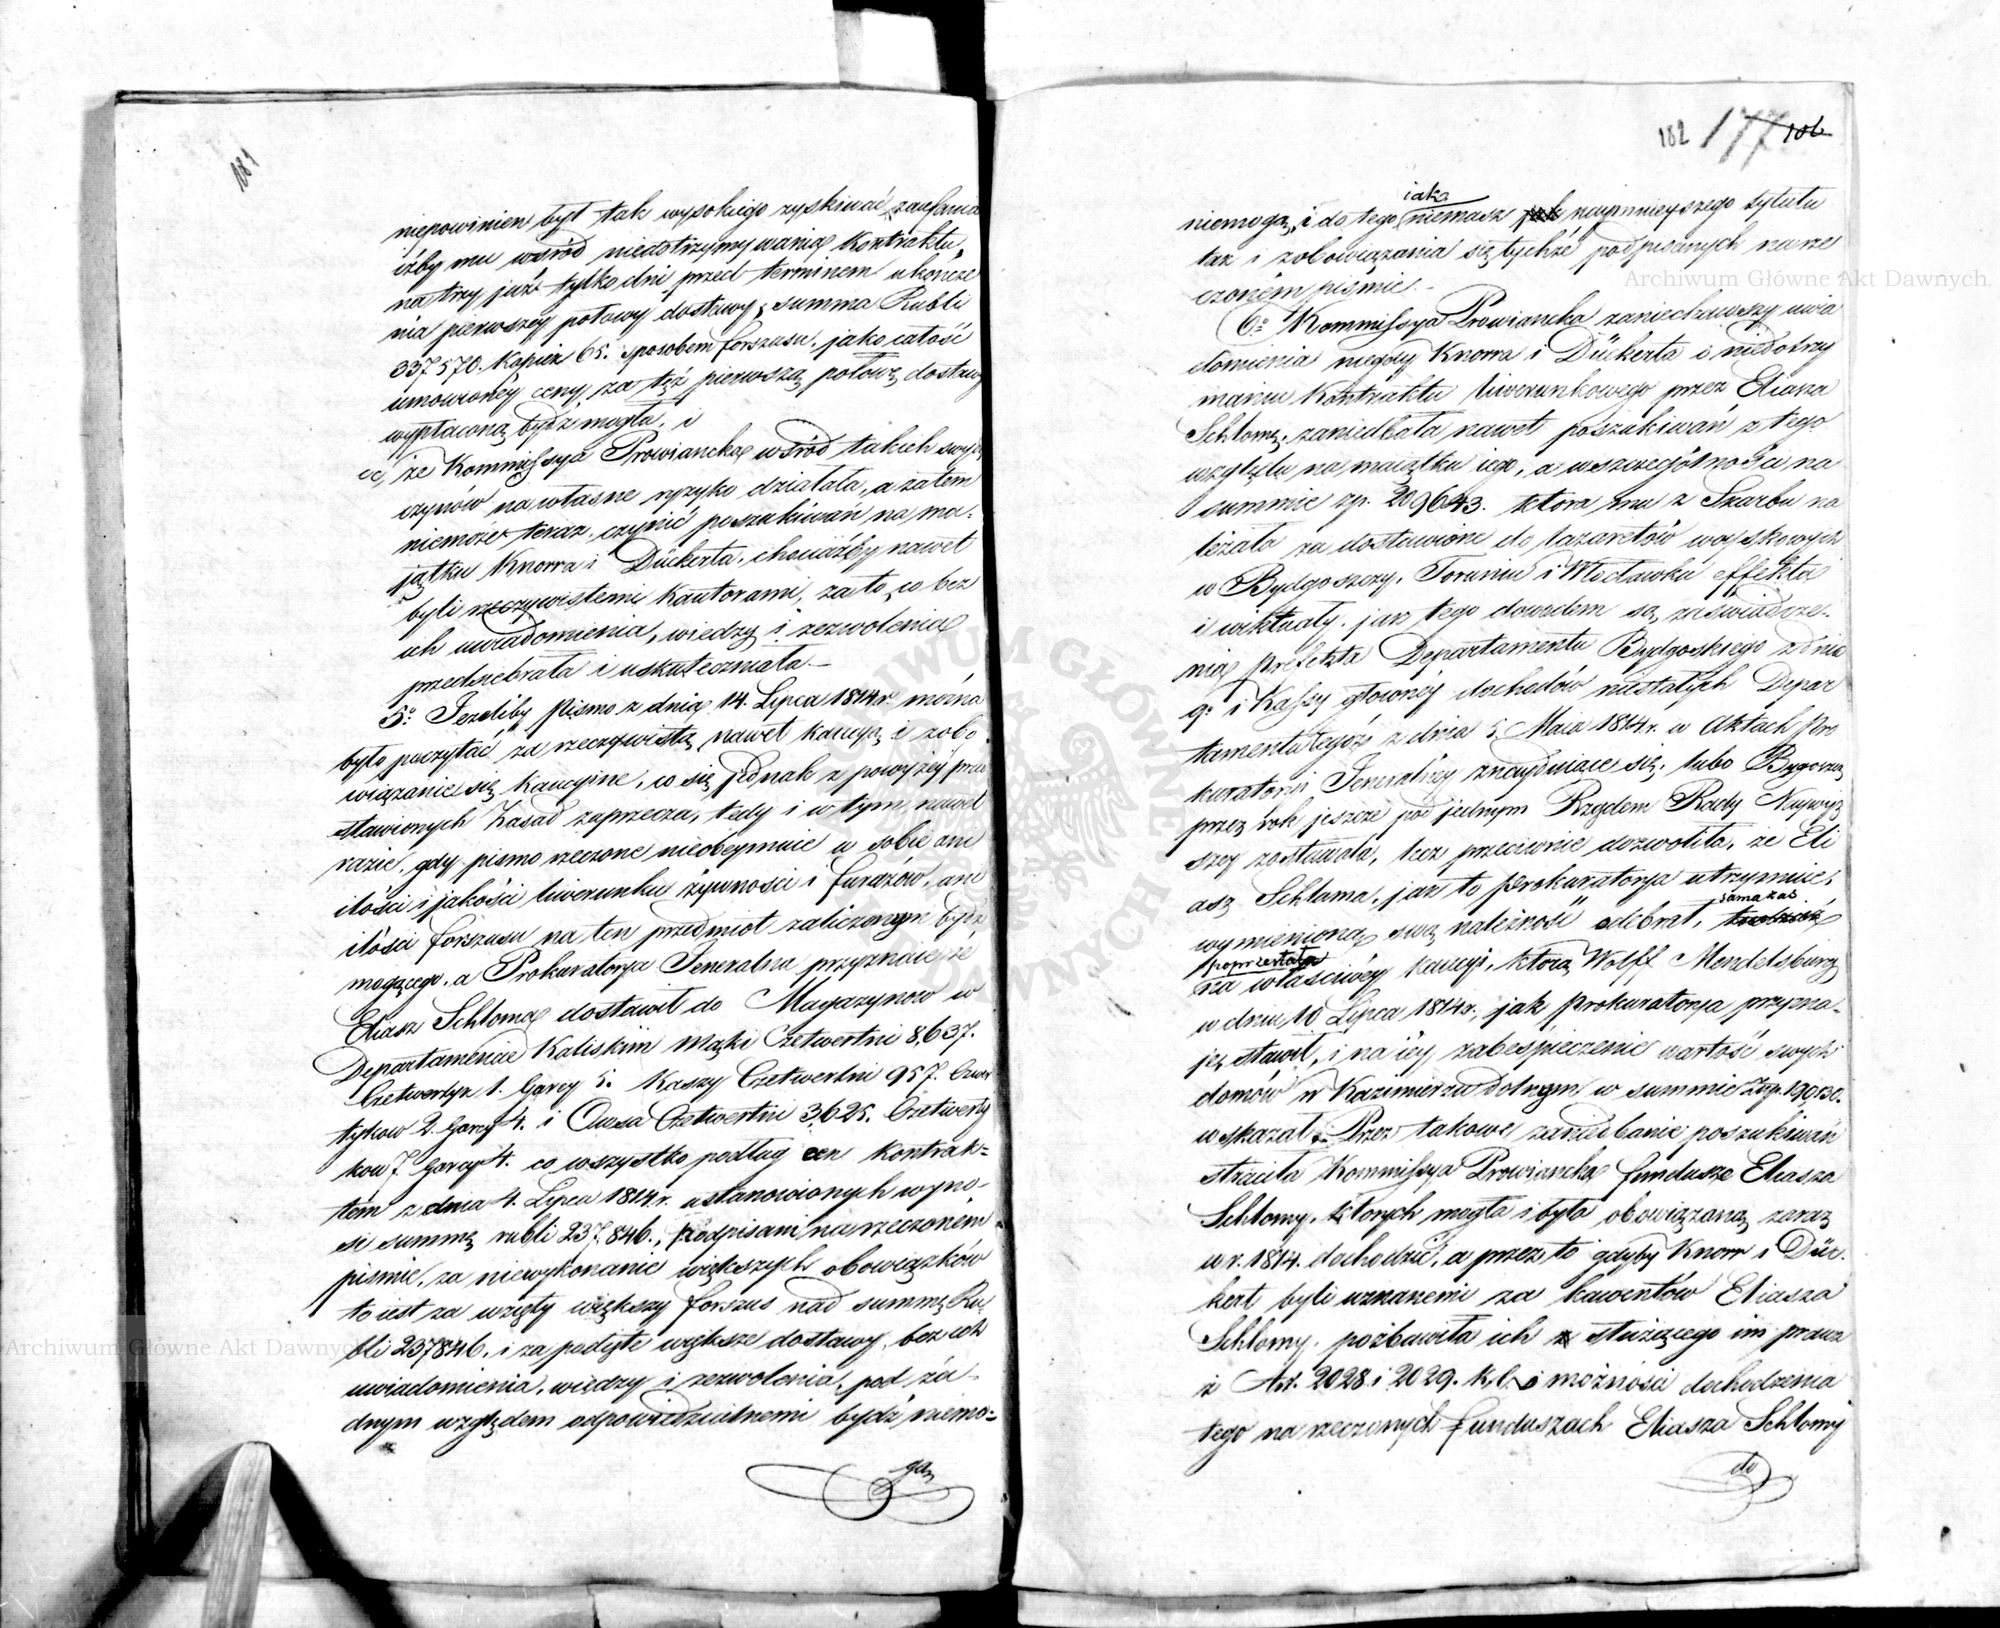 181
niepowinien był tak wysokiego zyskiwać zaufania
iżby mu wśród niedotrzymywania Kontraktu,
na trzy już tylko dni przed terminem ukończe
nia pierwszey połowy dostawy, summa Rubli
337,570. Kopiek 65. sposobem forszusu, jako całość
umowioney ceny za tęż pierwszą połowę dostawy
wypłaconą bydź mogła, i
cc, że Kommissya Prowiancka wśród takich swych
czynów na własne ryzyko działała, a zatem
niemoże teraz czynić poszukiwań na ma-
jątku Knorra i Dückerta, chociażby nawet
byli rzeczywistemi Kautorami, za to, co bez
ich uwiadomienia, wiedzy i zezwolenia
przedsiebrała i uskuteczniała.-
5o. Jeżeliby pismo z dnia 14. Lipca 1814 r. można
było poczytać za rzeczywistą nawet kaucyą i zobo
wiązanie się kaucyine, co się jednak z powyżey przed
stawionych Zasad zaprzecza, tedy i w tym nawet
razie, gdy pismo rzeczone nieobeymuie w sobie ani
ilości i jakości liwerunku żywności i furażów, ani
ilości forszusu na ten przedmiot zaliczonym bydź
mogącego, a Prokuratorya Jeneralna przyznaie, że
Eliasz Schloma dostawił do Magazynow w
Departamencie Kaliskim mąki Czetwertni 8,637.
Czetweryk 1. Garcy 5. Kaszy Czetwertni 957. Czwe
rykow 2. Garcy 4. i Owsa Czetwertni 3,625. Czetwery
kow 7. Garcy 4. co wszystko podług cen Kontrak-
tem z dnia 4. Lipca 1814 r. ustanowionych wyno-
si summę rubli 237,846., podpisani na rzeczonem
pismie, za niewykonanie większych obowiązków
to iest za wzięty większy forszus nad summę Ru
bli 237846. i za podięte większe dostawy, bez ich
uwiadomienia, wiedzy i zezwolenia, pod ża-
dnym względem odpowiedzialnemi bydź niemo-
gą
182 177 186
iako
niemogą, i do tego niemasz jak naymnieyszego tytułu
tak i zobowiązania się tychże podpisanych na rze
czoném piśmie.-
6o. Kommissya Prowiancka zaniechawszy uwia
domienia niegdy Knorra i Dückerta o niedotrzy
maniu Kontraktu liwerunkowego przez Eliasza
Schlomę, zaniedbała nawet poszukiwań z tego
względu na maiątku iego, a w szczególności na
summie zp. 209643. ktora mu z Skarbu na
leżała za dostawione do lazaretów woyskowych
w Bydgoszczy, Toruniu i Włocławku effekta
i wiktuały, jak tego dowodem są zaświadcze-
nia Prefekta Departamentu Bydgoskiego z dnia
9. i Kassy głowney dochodów niestałych Depar
tamentu tegoż z dnia 5. Maia 1814 r. w Aktach Pro
kuratorii Jeneralney znayduiące się, lubo Bydgoszcz
przez rok jeszcze pod jednym Rządem Rady Naywyż
szey zostawała, lecz przeciwnie dozwoliła, że Eli
asz Schloma, jak to Prokuratorya utrzymuie,
wymienioną swą należność odebrał, sama zaś
poprzestała
na właściwey kaucyi, którą Wolff Mendelsburg
w dniu 10 Lipca 1814 r., jak Prokuratorya przyzna-
je, stawił, i na iey zabeśpieczenie wartość swych
domów w Kazimierzu dolnym w summie Złp. 190,130.
wskazał.- Przez takowe zaniedbanie poszukiwań
straciła Kommissya Prowiancka fundusze Eliasza
Schlomy, ktorych mogła i była obowiązaną zaraz
w r. 1814. dochodzić, a przez to gdyby Knorr i Düc-
kert byli uznanemi za kawentów Eliasza
Schlomy, pozbawiła ich służącego im prawa
z Art. 2028 i 2029. K.C. i możności dochodzenia
tego na rzeczonych funduszach Eliasza Schlomy
do
Archiwum Główne Akt Dawnych
Archiwum Główne Akt Dawnych
ARCHIWUM GŁÓWNE AKT DAWNYCH